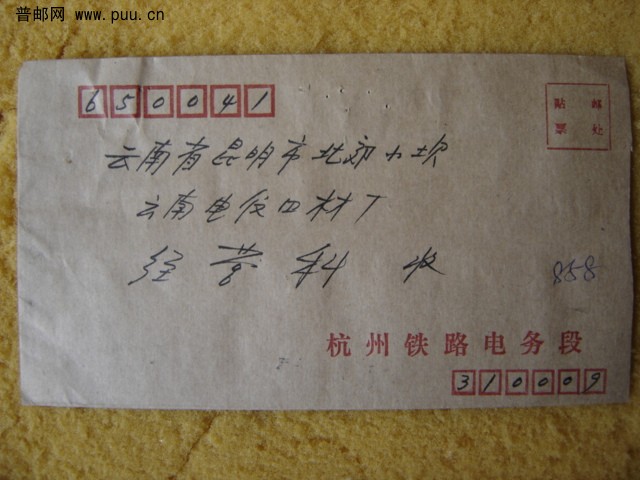 普邮网 www.puu.cn
650041
贴 邮
票 处
云南省昆明市北郊小坝
云南电信四材厂
经营科 收
858
杭州铁路电务段
310009